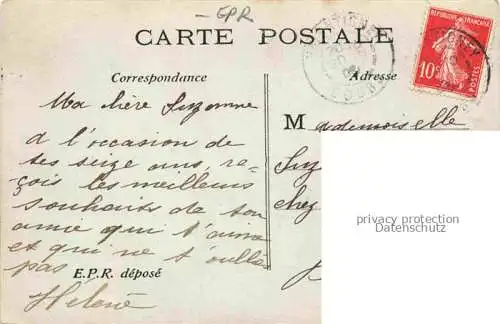 EPR
CARTE POSTALE
Correspondance
Adresse
RÉPUBLIQUE FRANÇAISE
10c
POSTES
Ma chère Suzanne
à l'occasion de
tes seize ans, re-
çois les meilleurs
souhaits de ton
amie qui t'aime
et qui ne t'oublie
pas
Hélène
E.P.R. déposé
Mademoiselle
Suz
chez
privacy protection
Datenschutz